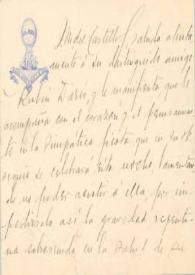 Andrés Castillo saluda atenta
mente a su distinguido amigo
Rubén Darío, y le manifiesta que le
acompaña con el corazón y el pensamien
to en la simpática fiesta que en su ob
sequio se celebrará esta noche, lamentan
do no poder asistir a ella, por im
pedírselo así la gravedad repenti
na sobrevenida en la salud de su